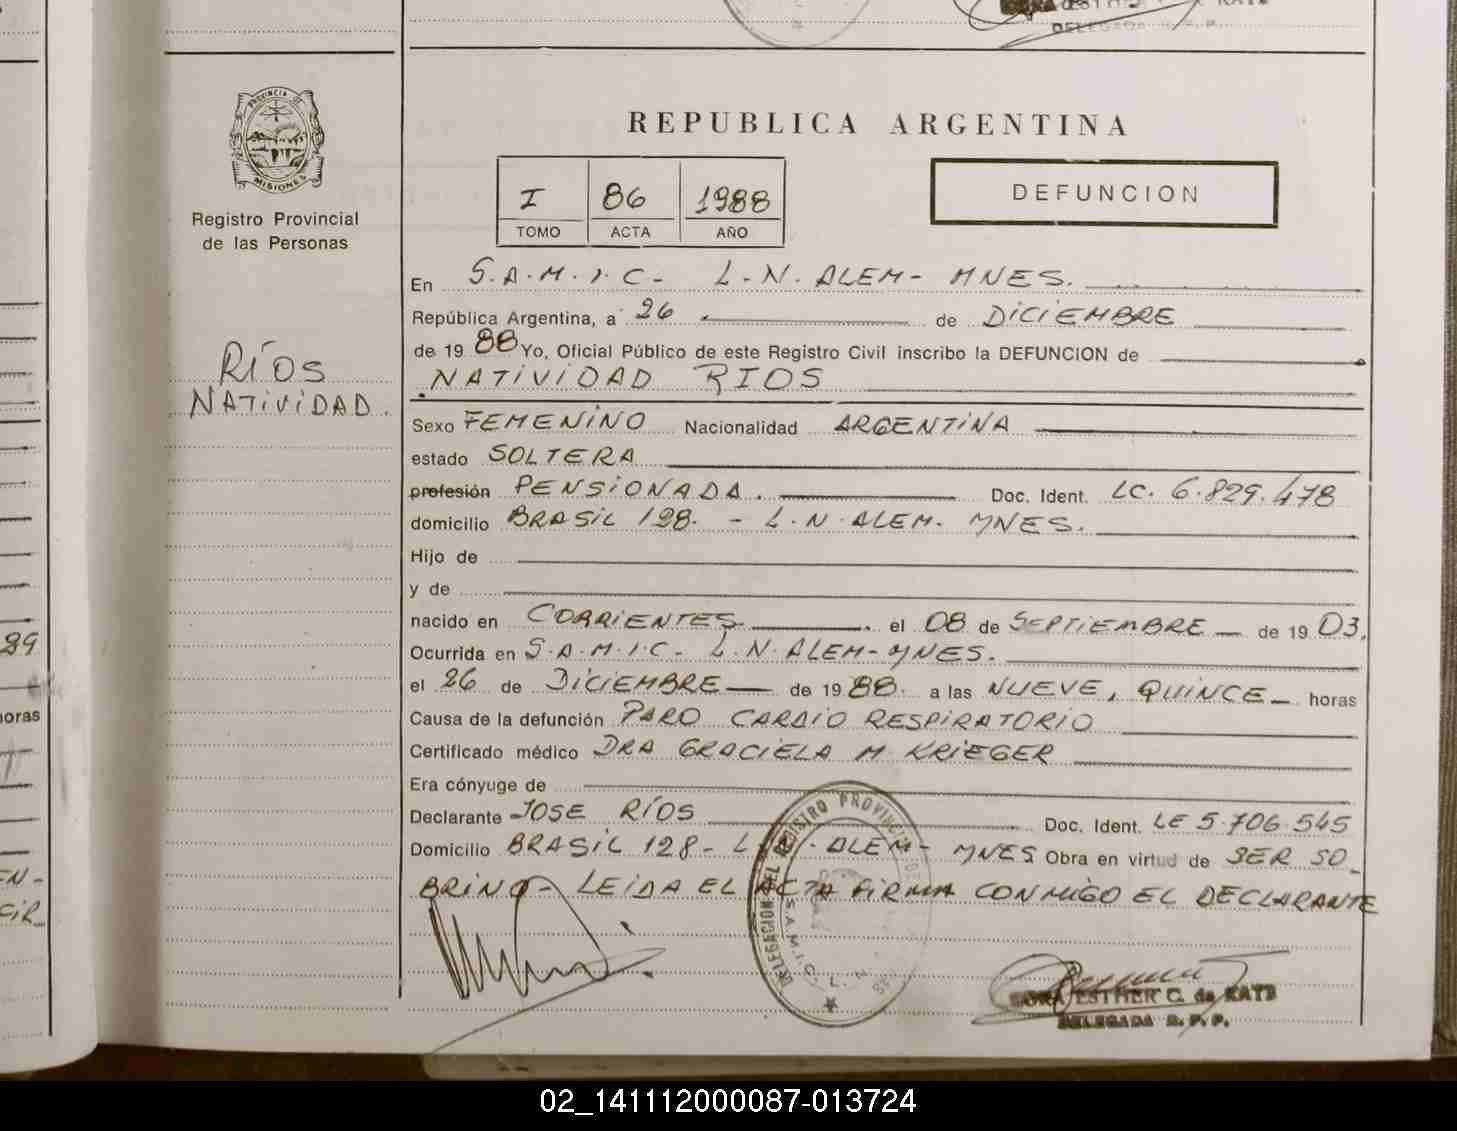 DELEGADA R.P.P.
PROVINCIA DE
MISIONES
Registro Provincial
de las Personas
RÍOS
NATIVIDAD.
REPUBLICA ARGENTINA
I 86 1988
TOMO ACTA AÑO
DEFUNCION
En S.A.M.I.C- L.N. ALEM- MNES.
República Argentina, a 26 de DICIEMBRE
de 19 88 Yo, Oficial Público de este Registro Civil inscribo la DEFUNCION de
NATIVIDAD RIOS
Sexo FEMENINO Nacionalidad ARGENTINA
estado SOLTERA
profesión PENSIONADA. Doc. Ident. LC. 6.829.478
domicilio BRASIL 128. - L.N. ALEM. MNES.
Hijo de
y de
nacido en CORRIENTES. el 08 de SEPTIEMBRE de 19 03.
Ocurrida en S.A.M.I.C- L.N. ALEM- MNES.
el 26 de DICIEMBRE de 19 88. a las NUEVE, QUINCE horas
Causa de la defunción PARO CARDIO RESPIRATORIO
Certificado médico DRA GRACIELA M KRIEGER
Era cónyuge de
Declarante JOSE RÍOS Doc. Ident. LE 5.706.545
Domicilio BRASIL 128- L.N. ALEM- MNES Obra en virtud de SER SO
BRINO- LEIDA EL ACTA FIRMA CONMIGO EL DECLARANTE
DELEGACION DEL REGISTRO PROVINCIAL DE
S.A.M.I.C. L. N.
ESTHER C. de KATZ
DELEGADA R.P.P.
89
horas
02_141112000087-013724